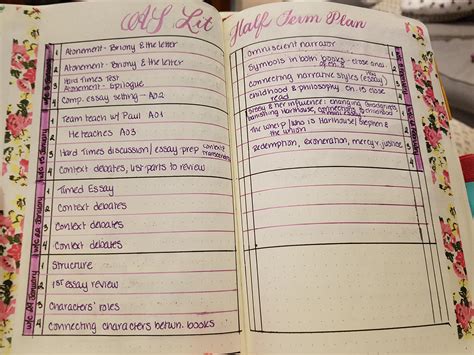 AS Lit
Half Term Plan
1 Atonement - Briony & the letter
2 Atonement - Briony & the letter
3 Hard Times Test
Atonement - Epilogue
4 Comp. essay setting - AO2
1 Team teach w/ Paul AO1
2 He teaches AO3
3 Hard Times discussion/essay prep context
4 Context debates, list parts to review
1 Timed Essay
2 Context debates
3 Context debates
4 Context debates
1 Structure
2 1st essay review
3 Characters' roles
4 Connecting characters betwn. books
w/c January
Omniscient narrator
Symbols in both books - close ones
Connecting narrative styles (essay) Plan
childhood & philosophy ch. 15 close
read
& her influence: changing
banishing Harthouse,
The whelp / Who is Harthouse / Stephen &
the union
Redemption, exoneration, mercy & justice
1
2
3
4